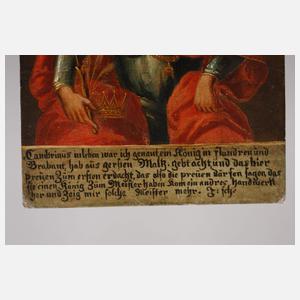 Cambrinus in leben war ich genant ein König in flandren und
Brabant, hab aus gersten Maltz gebracht und das bier
preuen Zum ersten erdacht, das also die preüen därfen sagen das
sie einen König Zum Meister haben Kom ein andres handwerk
her und Zeig mir solche Meister mehr.